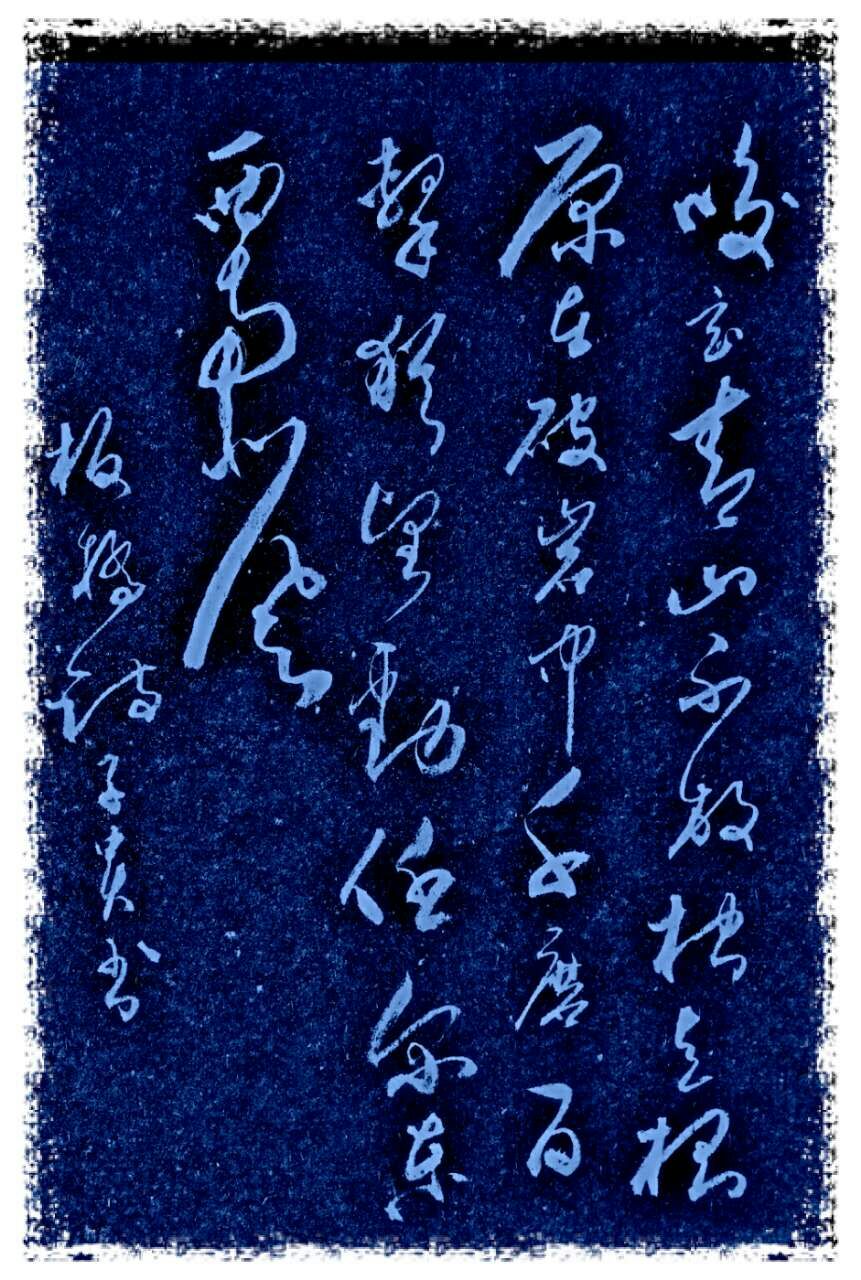 咬定青山不放松立根
原在破岩中千磨百
擊犹坚劲任尔东
西南北风
板桥诗子贵书